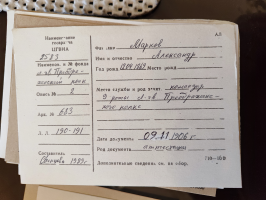 Наимено-вание
госарх-ва
ЦГВИА
2583
Наименов. и № фонда
л-гв. Преобра-
женский полк
Опись № 2
Арх. № 683
л. л. 190-191
Составитель
1939г.
АЛ
Фамилия Марков
Имя и отчество Александр
Год рожд. Место рожд.
Место службы и род занят. командир
9 роты л-гв Преображен-
ского полка
Дата документа 09.11.1906 г
Род документа аттестация
Дополнительные сведения см. на обор.